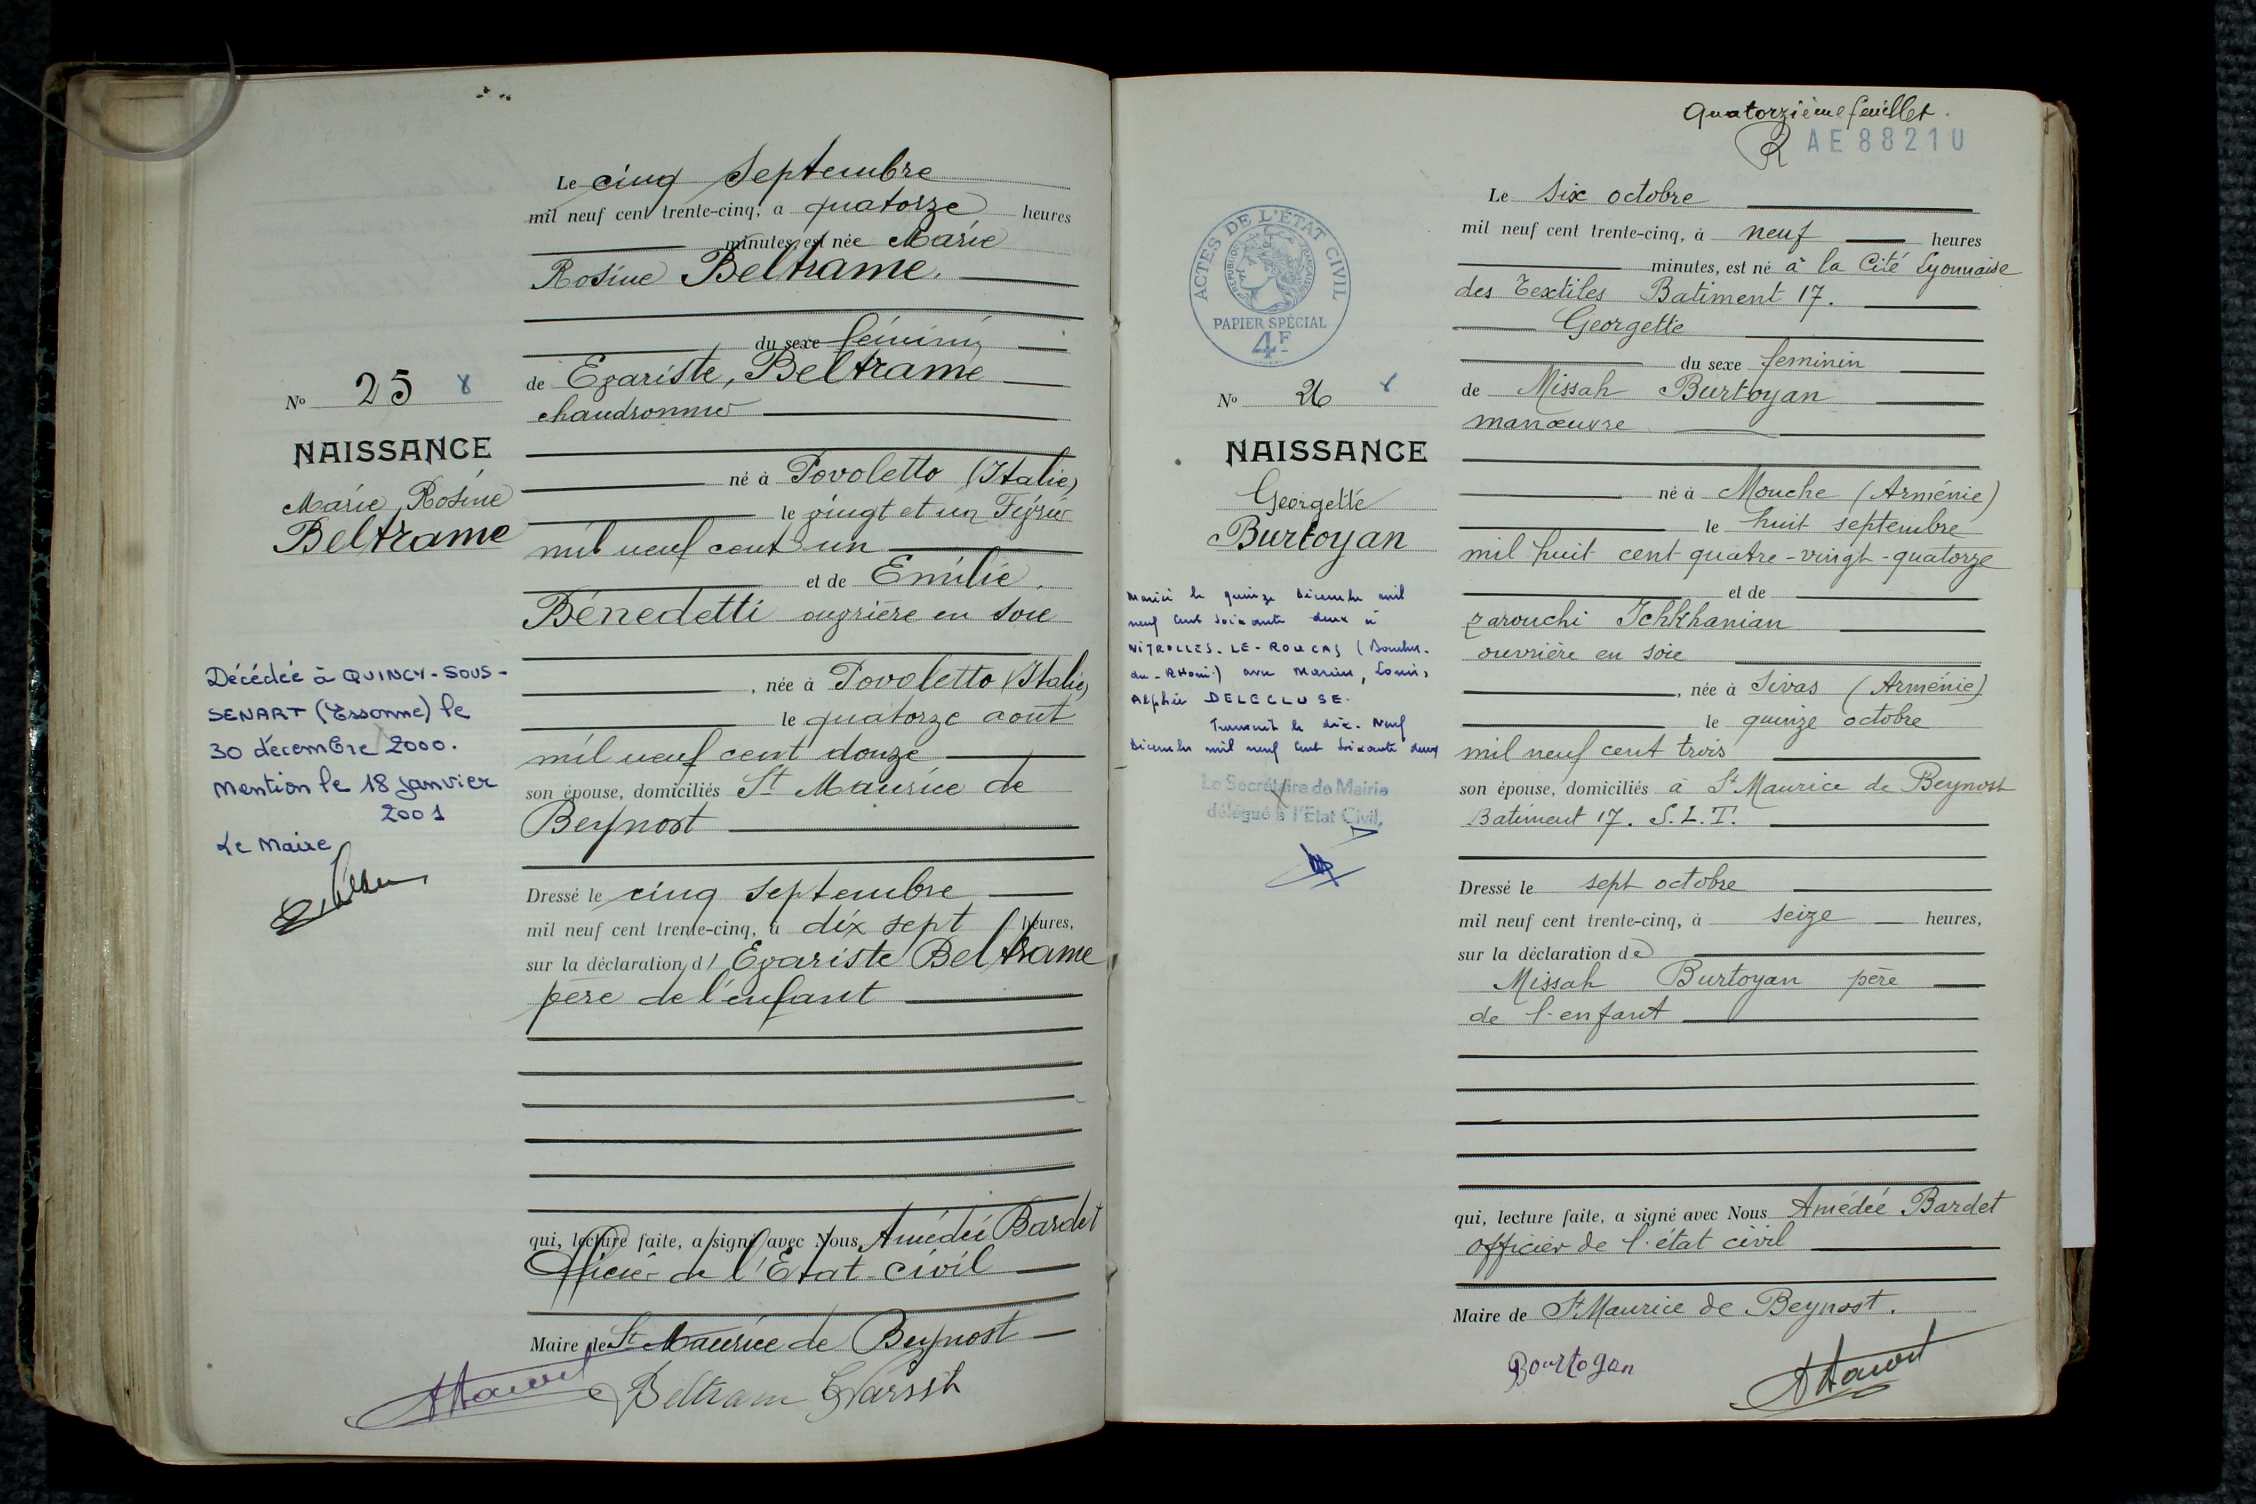 Le cinq Septembre
mil neuf cent trente-cinq, à quatorze heures
minutes, est née Marie
Rosine Beltrame.
du sexe féminin
de Evariste, Beltrame
chaudronnier
né à Povoletto (Italie)
le vingt et un Février
mil neuf cent un
et de Emilie
Bénedetti ouvrière en soie
, née à Povoletto (Italie)
le quatorze août
mil neuf cent douze
son épouse, domiciliés St Maurice de
Beynost
Dressé le cinq septembre
mil neuf cent trente-cinq, à dix sept heures,
sur la déclaration d' Evariste Beltrame
père de l'enfant
qui, lecture faite, a signé avec Nous, Amédée Bardet
Officier de l'Etat-civil
Maire de St Maurice de Beynost
Beltram
No 25
NAISSANCE
Marie Rosine
Beltrame
Décédée à QUINCY-SOUS-
SENART (Essonne) le
30 décembre 2000.
Mention le 18 janvier
2001
Le Maire
Quatorzième feuillet.
AE88210
Le six octobre
mil neuf cent trente-cinq, à neuf heures
minutes, est né à la Cité Lyonnaise
des Textiles Batiment 17.
Georgette
du sexe feminin
de Missah Burtoyan
manœuvre
né à Mouche (Arménie)
le huit septembre
mil huit cent quatre-vingt-quatorze
et de
Zarouchi Ichkhanian
ouvrière en soie
, née à Sivas (Arménie)
le quinze octobre
mil neuf cent trois
son épouse, domiciliés à St Maurice de Beynost
Batiment 17. S.L.T.
Dressé le sept octobre
mil neuf cent trente-cinq, à seize heures,
sur la déclaration de
Missah Burtoyan père
de l'enfant
qui, lecture faite, a signé avec Nous Amédée Bardet
officier de l'état civil
Maire de St Maurice de Beynost.
Bourtogan
ACTES DE L'ÉTAT CIVIL
RÉPUBLIQUE FRANÇAISE
PAPIER SPÉCIAL
4F
No 26
NAISSANCE
Georgette
Burtoyan
Marié le quinze décembre mil
neuf cent soixante deux à
VITROLLES-LE-ROUCAS (Bouches-
du-Rhône) avec Marius, Louis,
Alphée DELECLUSE.
Transcrit le dix-neuf
Décembre mil neuf cent soixante deux
Le Secrétaire de Mairie
délégué à l'Etat Civil,